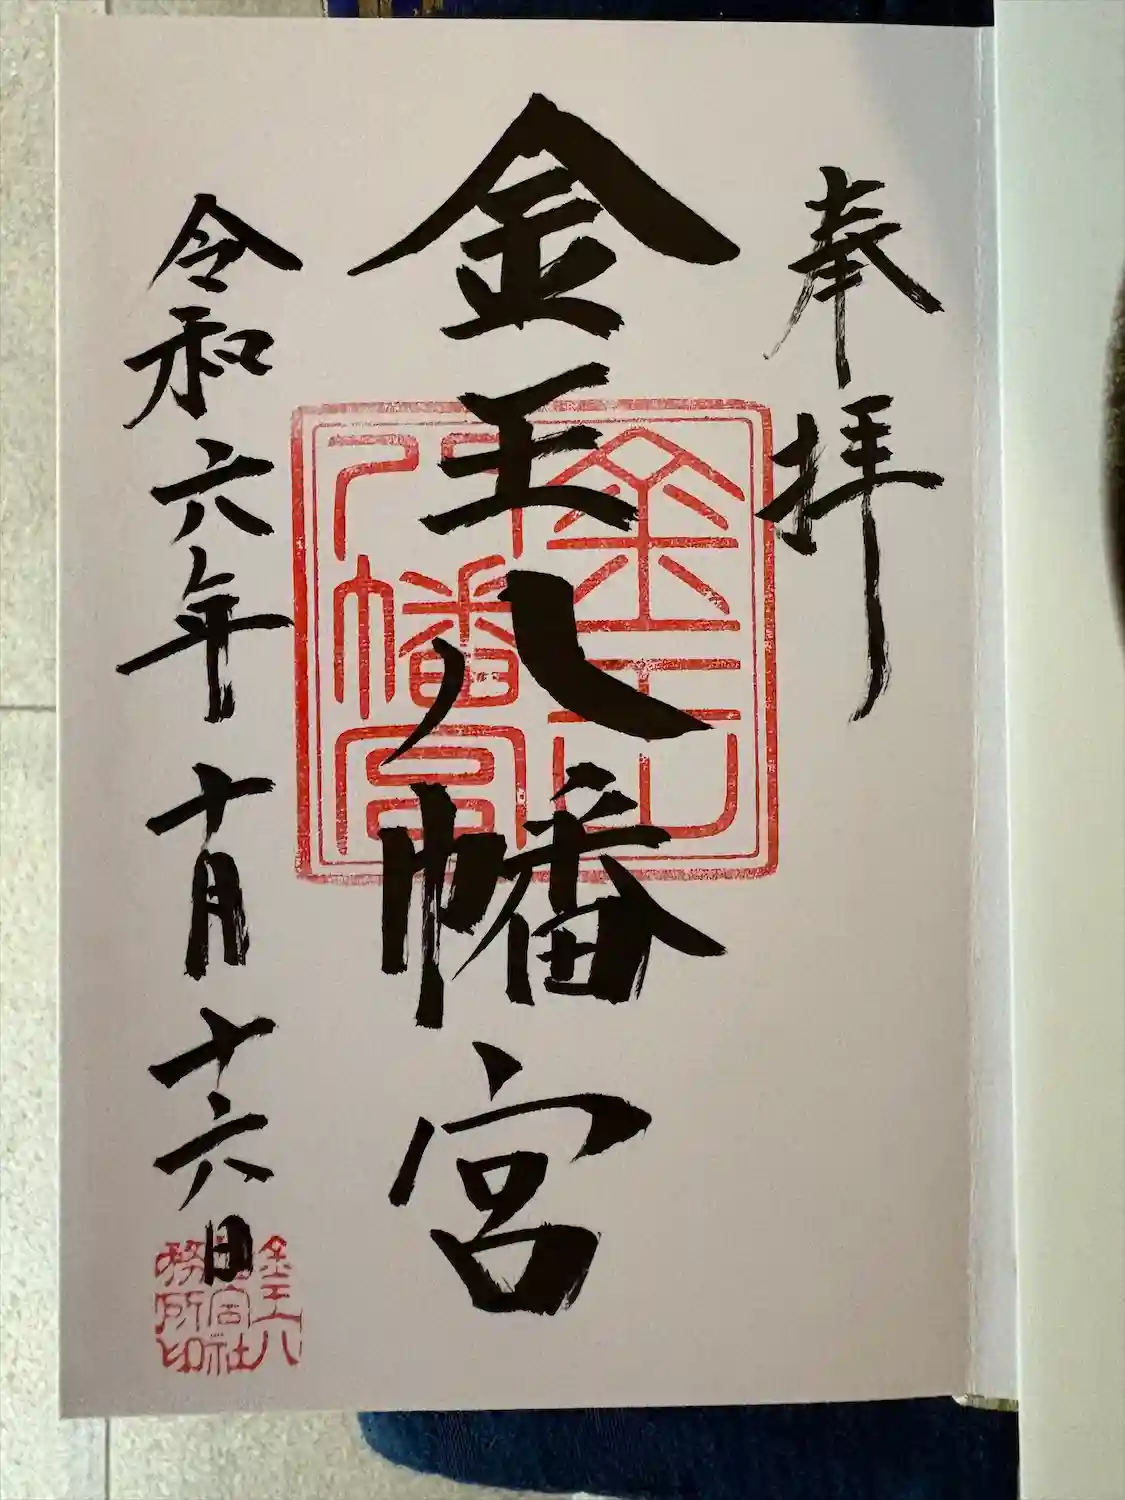 奉拝
金王八幡宮
金王
八幡宮
令和六年十月十六日
金王八
幡宮社
務所印